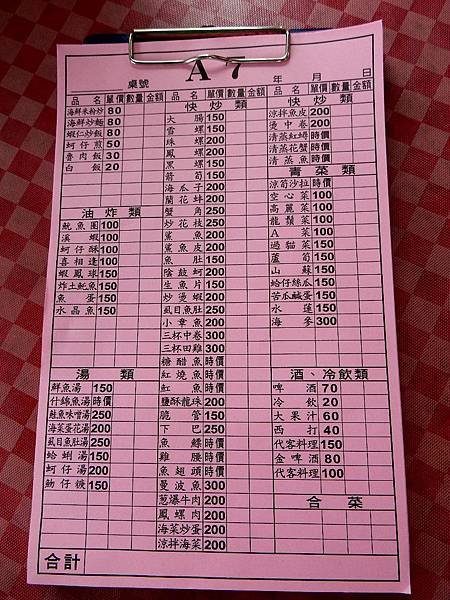 A 7
桌號
年 月 日
品名 單價 數量 金額
海鮮米粉炒 80
海鮮炒麵 80
蝦仁炒飯 80
蚵仔煎 50
魯肉飯 30
白飯 20
油炸類
魷魚圈 100
溪蝦 100
蚵仔酥 100
喜相逢 100
蝦鳳球 150
炸土魠魚 150
魚蛋 150
水晶魚 150
湯類
鮮魚湯 150
什錦魚湯 時價
鮭魚味噌湯 250
海菜蛋花湯 200
虱目魚肚湯 250
蛤蜊湯 150
蚵仔湯 200
魩仔羹 150
合計
品名 單價 數量 金額
快炒類
大腸 150
雪螺 150
珠螺 200
鳳螺 200
黑螺 150
箭筍 150
海瓜子 200
蘭花蚌 200
蟹角 250
炒花枝 250
鯊魚 200
鯊魚皮 200
魚肚 150
陰鼓蚵 200
生魚片 150
炒燙蝦 200
虱目魚肚 250
小章魚 200
三杯中卷 300
三杯田雞 300
糖醋魚 時價
紅燒魚 時價
魟魚 時價
鹽酥龍珠 200
脆管 150
下巴 250
魚鰾 時價
雞腰 時價
魚翅頭 時價
曼波魚 300
蔥爆牛肉 200
鳳螺肉 200
海菜炒蛋 200
涼拌海菜 200
品名 單價 數量 金額
快炒類
涼拌魚皮 200
燙中卷 200
清蒸紅蟳 時價
清蒸花蟹 時價
清蒸魚 時價
青菜類
涼筍沙拉 時價
空心菜 100
高麗菜 100
龍鬚菜 100
A菜 100
過貓菜 150
蘆筍 150
山蘇 150
蛤仔絲瓜 150
苦瓜鹹蛋 150
水蓮 150
海參 300
酒、冷飲類
啤酒 70
冷飲 20
大果汁 60
西打 40
代客料理 150
金啤酒 80
代客料理 100
合菜